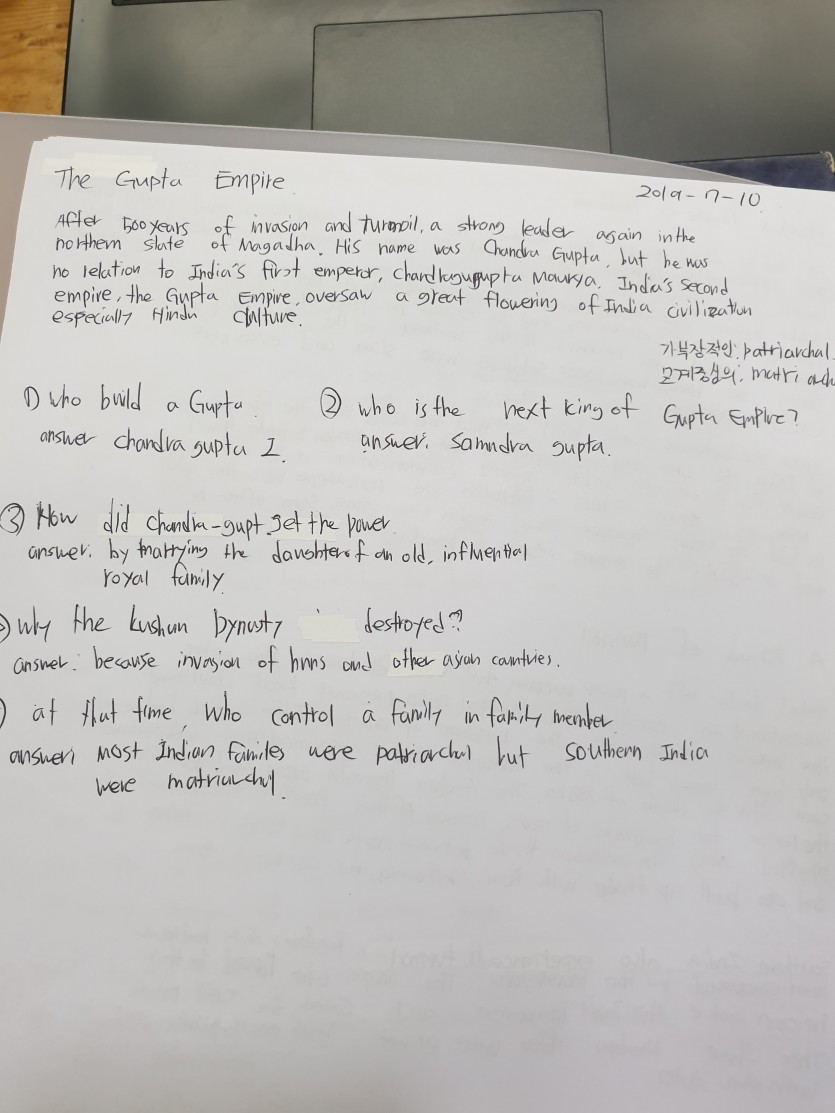 The Gupta Empire
2019-7-10
After 500 years of invasion and turmoil, a strong leader again in the
northern state of Magadha. His name was Chandra Gupta, but he was
no relation to India's first emperor, Maurya. India's second
empire, the Gupta Empire, oversaw a great flowering of India civilization
especially Hindu culture.
가부장적인: patriarchal.
모계중심의: matri
① who build a Gupta.
answer chandra gupta I.
② who is the next king of Gupta Empire?
answer. Samndra gupta.
③ How did chandra-gupt get the power
answer. by marrying the daughter of an old, influential
royal family
why the kushan Dynasty destroyed?
answer: because invasion of hnns and other asian countries.
) at that time, who control a family in family member
answer: most Indian familes were patriarchal but southern India
were matriarchal.